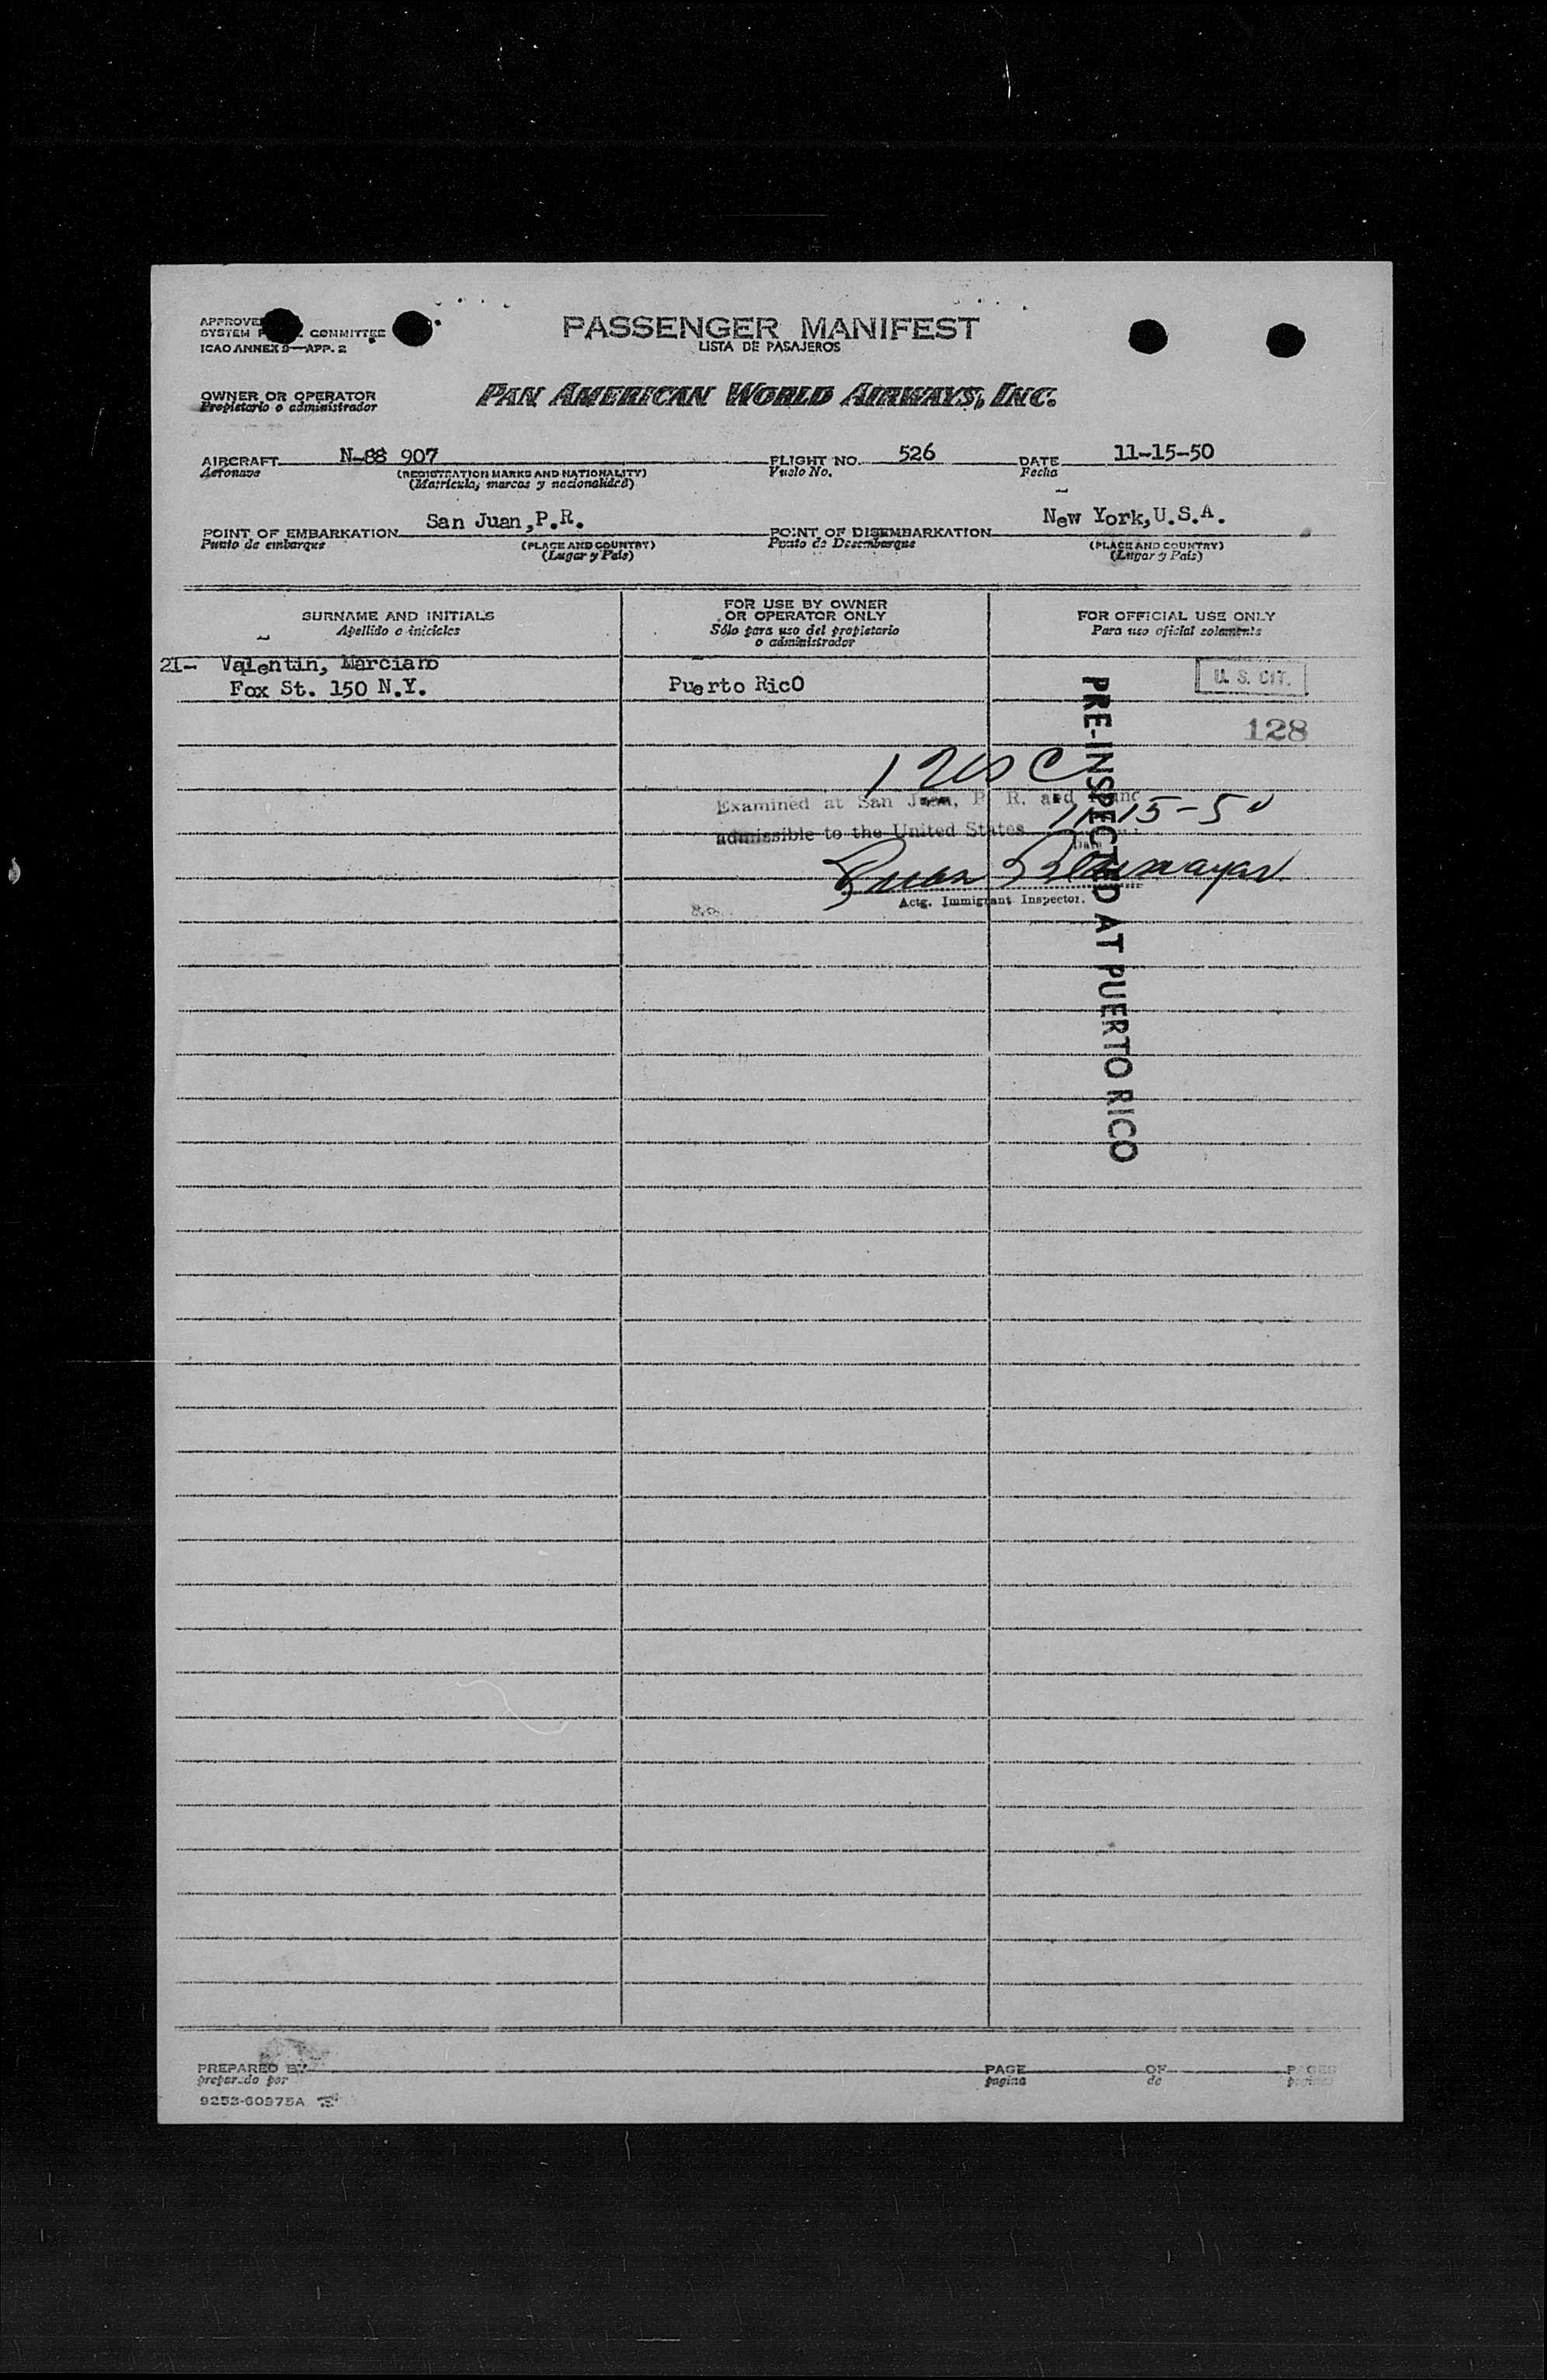 PASSENGER MANIFEST
LISTA DE PASAJEROS
SYSTEM COMMITTEE
ICAO ANNEX 9—APP. 2
OWNER OR OPERATOR
Propietario o administrador
PAN AMERICAN WORLD AIRWAYS, INC.
AIRCRAFT N-88 907 FLIGHT NO. 526 DATE 11-15-50
Aeronave (REGISTRATION MARKS AND NATIONALITY) Vuelo No. Fecha
(Matricula, marcas y nacionalidad)
POINT OF EMBARKATION San Juan,P.R. POINT OF DISEMBARKATION New York,U.S.A.
Punto de embarque (PLACE AND COUNTRY) Punto de Desembarque (PLACE AND COUNTRY)
(Lugar y País) (Lugar y País)
SURNAME AND INITIALS
Apellido e iniciales
FOR USE BY OWNER
OR OPERATOR ONLY
Sólo para uso del propietario
o administrador
FOR OFFICIAL USE ONLY
Para uso oficial solamente
21- Valentin, Marciano
Fox St. 150 N.Y.
Puerto RicO
U. S. CIT.
128
1 USC
Examined at San Juan, P. R. and
admissible to the United States 11-15-50
Date
Actg. Immigrant Inspector.
PRE-INSPECTED AT PUERTO RICO
PREPARED BY PAGE OF PAGES
preparado por pagina de paginas
9252-60975A